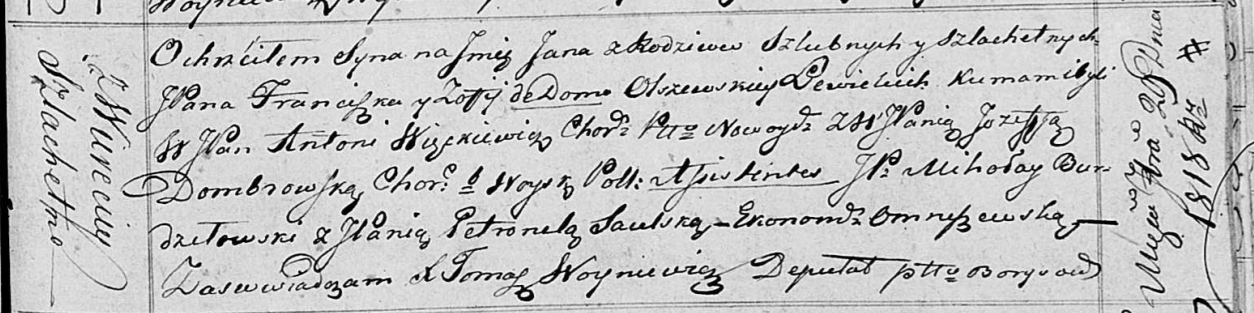 z Wirecizy
Szlachetne
Ochrzciłem Syna na Jmię Jana z Rodziców Szlubnych y Szlachetnych
JPana Franciszka y Zofij de Domo Olszewskiey Lewickich Kumami byli
W JPan Antoni Więckiewicz Chorż Pttu Nowogdz z W JPanią Jozeffą
Dombrowską Chorż b Woysk Pols: Assistentes JP Mikołay Bur-
dzełowski z JPanią Petronelą Saulską Ekonomdz Omniszewską
Zaswiadczam X Tomasz Woyniewicz Deputat pttu Borysow
8bra 29 Dnia
1818 Ru